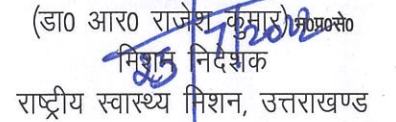 (डा० आर० राजेश कुमार) भा०प्र०से०
मिशन निदेशक
राष्ट्रीय स्वास्थ्य मिशन, उत्तराखण्ड